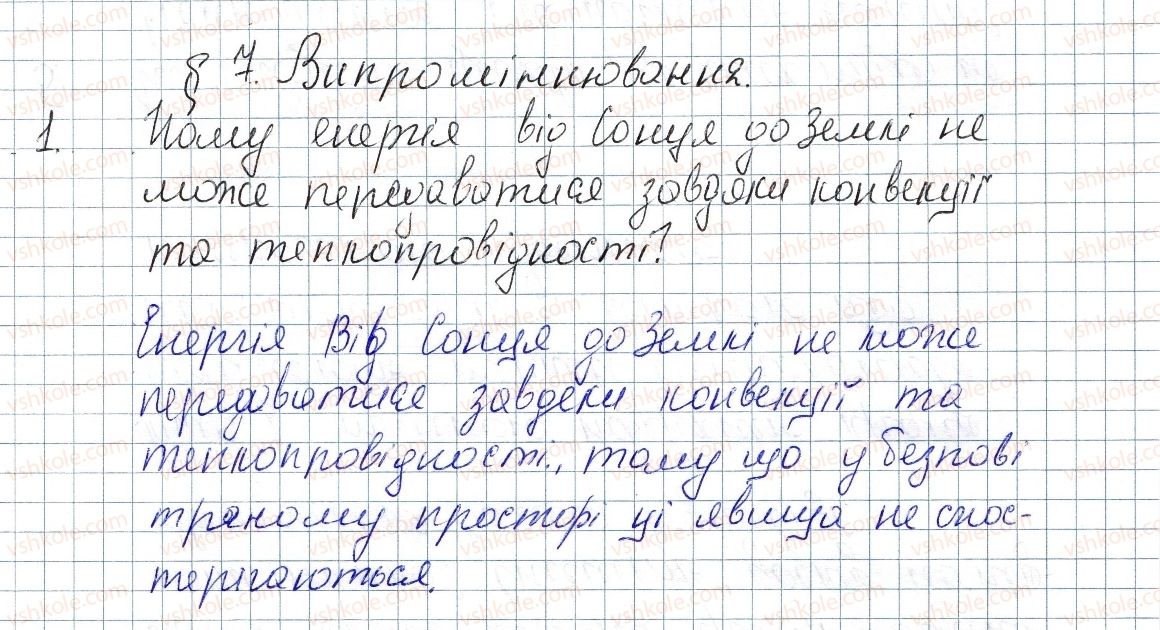 § 7. Випромінювання.
1. Чому енергія від Сонця до Землі не
може передаватися завдяки конвекції
та теплопровідності?
Енергія Від Сонця до Землі не може
передаватися завдяки конвекції та
теплопровідності, тому що у безпові
тряному просторі ці явища не спос-
терігаються.